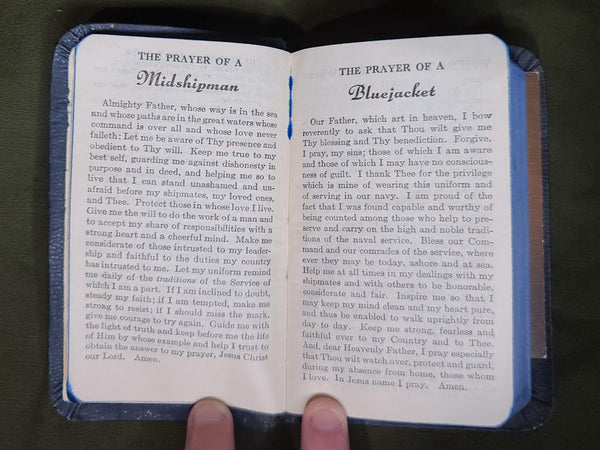 THE PRAYER OF A
Midshipman
Almighty Father, whose way is in the sea
and whose paths are in the great waters whose
command is over all and whose love never
faileth: Let me be aware of Thy presence and
obedient to Thy will. Keep me true to my
best self, guarding me against dishonesty in
purpose and in deed, and helping me so to
live that I can stand unashamed and un-
afraid before my shipmates, my loved ones,
and Thee. Protect those in whose love I live.
Give me the will to do the work of a man and
to accept my share of responsibilities with a
strong heart and a cheerful mind. Make me
considerate of those intrusted to my leader-
ship and faithful to the duties my country
has intrusted to me. Let my uniform remind
me daily of the traditions of the Service of
which I am a part. If I am inclined to doubt,
steady my faith; if I am tempted, make me
strong to resist; if I should miss the mark,
give me courage to try again. Guide me with
the light of truth and keep before me the life
of Him by whose example and help I trust to
obtain the answer to my prayer, Jesus Christ
our Lord. Amen.
THE PRAYER OF A
Bluejacket
Our Father, which art in heaven, I bow
reverently to ask that Thou wilt give me
Thy blessing and Thy benediction. Forgive,
I pray, my sins; those of which I am aware
and those of which I may have no conscious-
ness of guilt. I thank Thee for the privilege
which is mine of wearing this uniform and
of serving in our navy. I am proud of the
fact that I was found capable and worthy of
being counted among those who help to pre-
serve and carry on the high and noble tradi-
tions of the naval service. Bless our Com-
mand and our comrades of the service, where
ever they may be today, ashore and at sea.
Help me at all times in my dealings with my
shipmates and with others to be honorable,
considerate and fair. Inspire me so that I
may keep my mind clean and my heart pure,
and thus be enabled to walk uprightly from
day to day. Keep me strong, fearless and
faithful ever to my Country and to Thee.
And, dear Heavenly Father, I pray especially
that Thou wilt watch over, protect and guard,
during my absence from home, those whom
I love. In Jesus name I pray. Amen.